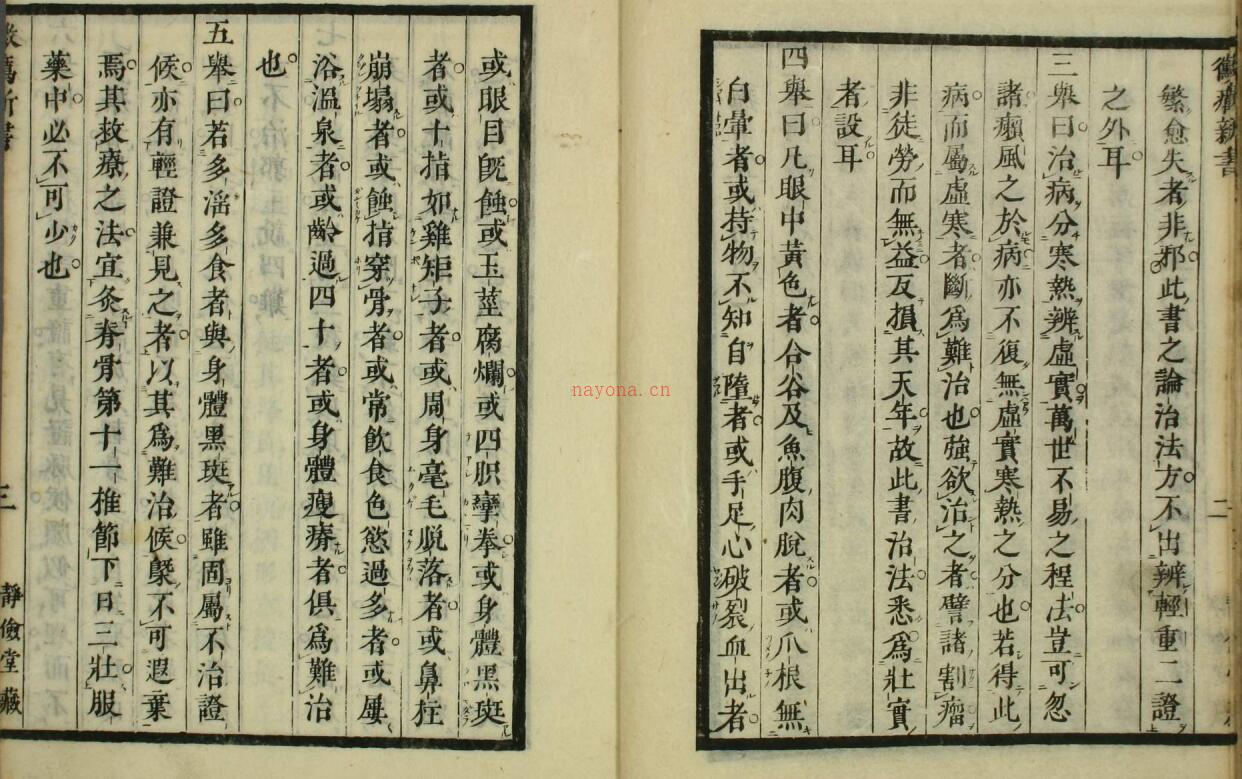 繁愈失者非邪此書之論治法方不出辨輕重二證
之外耳
三舉曰治病分寒熱辨虛實萬世不易之程法豈可忽
諸癩風之於病亦不復無虛實寒熱之分也若得此
病而屬虛寒者斷爲難治也強欲治之者譬諸割瘤
非徒勞而無益反損其天年故此書治法悉爲壯實
者設耳
四舉曰凡眼中黃色者合谷及魚腹肉脫者或爪根無
白暈者或持物不知自墮者或手足心破裂血出者
或眼目既蝕或玉莖腐爛或四肢攣拳或身體黑斑
者或十指如雞矩子者或周身毫毛脫落者或鼻柱
崩塌者或蝕指穿骨者或常飲食色慾過多者或屢
浴溫泉者或齡過四十者或身體瘦瘠者俱爲難治
也
五舉曰若多淫多食者與身體黑斑者雖固屬不治證
候亦有輕證兼見之者以其爲難治候槩不可遐棄
焉其救療之法宜灸脊骨第十一推節下日三壯服
藥中必不可少也
二
三
靜儉堂藏
nayona.cn